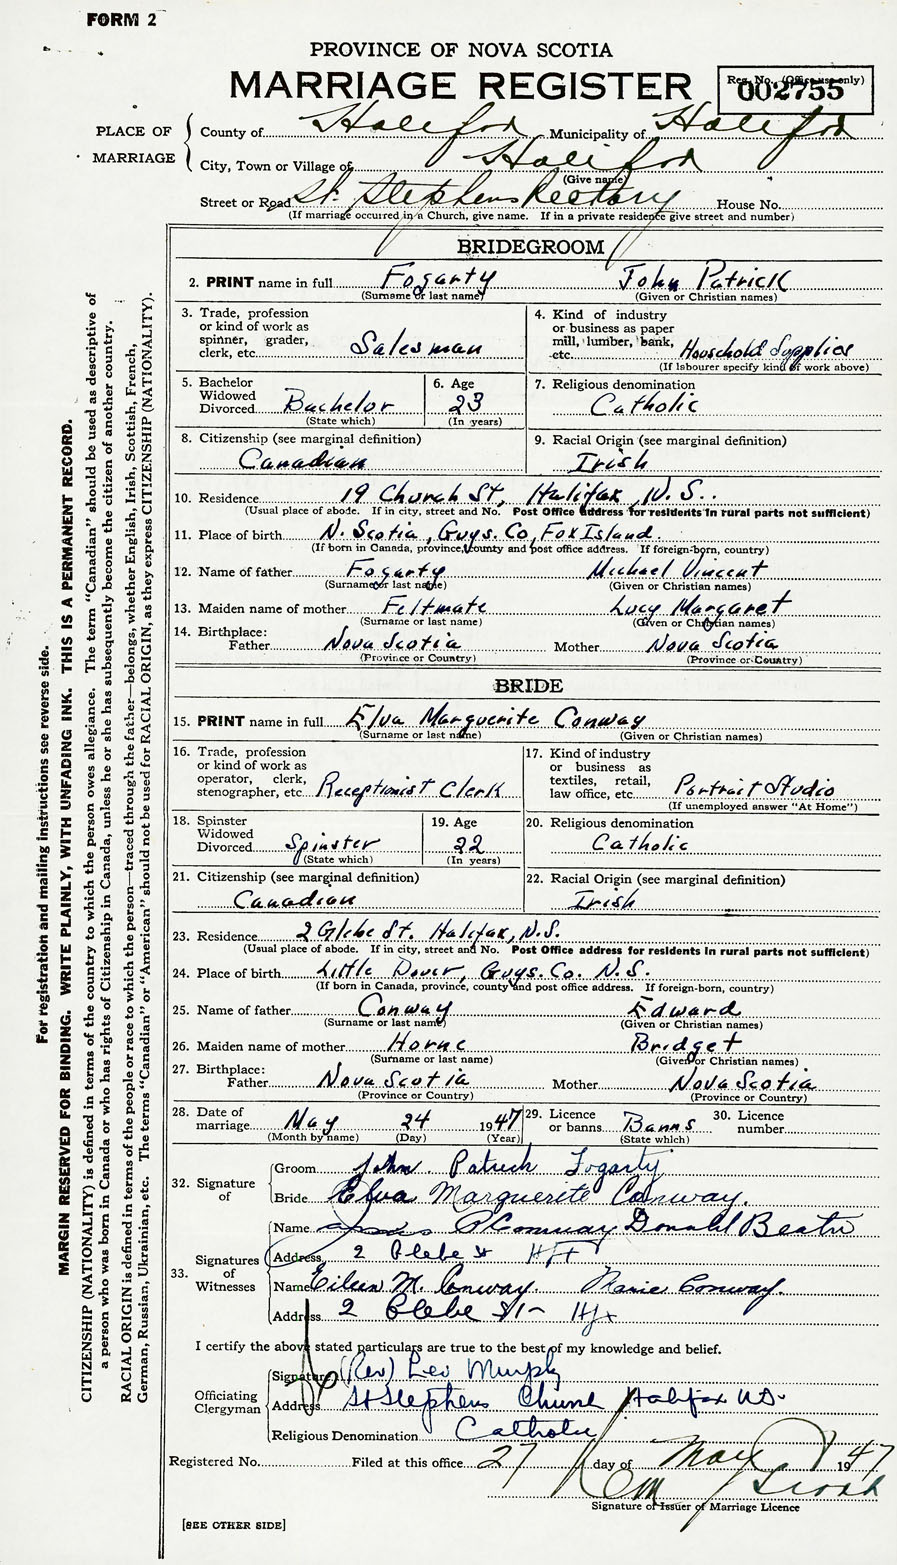 FORM 2
PROVINCE OF NOVA SCOTIA
MARRIAGE REGISTER
Reg. No. (Office use only)
002755
PLACE OF MARRIAGE
County of Halifax Municipality of Halifax
City, Town or Village of Halifax
(Give name)
Street or Road St. Stephens Rectory House No.
(If marriage occurred in a Church, give name. If in a private residence give street and number)
BRIDEGROOM
2. PRINT name in full Fogarty John Patrick
(Surname or last name) (Given or Christian names)
3. Trade, profession or kind of work as spinner, grader, clerk, etc. Salesman
4. Kind of industry or business as paper mill, lumber, bank, etc. Household Supplies
(If labourer specify kind of work above)
5. Bachelor Widowed Divorced Bachelor
(State which)
6. Age 23
(In years)
7. Religious denomination
Catholic
8. Citizenship (see marginal definition)
Canadian
9. Racial Origin (see marginal definition)
Irish
10. Residence 19 Church St, Halifax, N.S.
(Usual place of abode. If in city, street and No. Post Office address for residents in rural parts not sufficient)
11. Place of birth N. Scotia, Guys. Co, Fox Island.
(If born in Canada, province, county and post office address. If foreign-born, country)
12. Name of father Fogarty Michael Vincent
(Surname or last name) (Given or Christian names)
13. Maiden name of mother Feltmate Lucy Margaret
(Surname or last name) (Given or Christian names)
14. Birthplace:
Father Nova Scotia Mother Nova Scotia
(Province or Country) (Province or Country)
BRIDE
15. PRINT name in full Elva Marguerite Conway
(Surname or last name) (Given or Christian names)
16. Trade, profession or kind of work as operator, clerk, stenographer, etc. Receptionist Clerk
17. Kind of industry or business as textiles, retail, law office, etc. Portrait Studio
(If unemployed answer "At Home")
18. Spinster Widowed Divorced Spinster
(State which)
19. Age 22
(In years)
20. Religious denomination
Catholic
21. Citizenship (see marginal definition)
Canadian
22. Racial Origin (see marginal definition)
Irish
23. Residence 2 Glebe St. Halifax, N.S.
(Usual place of abode. If in city, street and No. Post Office address for residents in rural parts not sufficient)
24. Place of birth Little Dover, Guys. Co. N.S.
(If born in Canada, province, county and post office address. If foreign-born, country)
25. Name of father Conway Edward
(Surname or last name) (Given or Christian names)
26. Maiden name of mother Horne Bridget
(Surname or last name) (Given or Christian names)
27. Birthplace:
Father Nova Scotia Mother Nova Scotia
(Province or Country) (Province or Country)
28. Date of marriage May 24 1947
(Month by name) (Day) (Year)
29. Licence or banns Banns
(State which)
30. Licence number
32. Signature of
Groom John Patrick Fogarty
Bride Elva Marguerite Conway.
33. Signatures of Witnesses
Name Conway Donald
Address 2 Glebe St Hfx
Name Eileen M. Conway. Marie Conway.
Address 2 Glebe St Hfx
I certify the above stated particulars are true to the best of my knowledge and belief.
Officiating Clergyman
Signature (Rev) Leo Murphy
Address St Stephens Church Halifax NS.
Religious Denomination Catholic
Registered No. Filed at this office 27 day of May 1947
Signature of Issuer of Marriage Licence
[SEE OTHER SIDE]
For registration and mailing instructions see reverse side.
MARGIN RESERVED FOR BINDING. WRITE PLAINLY, WITH UNFADING INK. THIS IS A PERMANENT RECORD.
CITIZENSHIP (NATIONALITY) is defined in terms of the country to which the person owes allegiance. The term "Canadian" should be used as descriptive of
a person who was born in Canada or who has rights of Citizenship in Canada, unless he or she has subsequently become the citizen of another country.
RACIAL ORIGIN is defined in terms of the people or race to which the person—traced through the father—belongs, whether English, Irish, Scottish, French,
German, Russian, Ukrainian, etc. The terms "Canadian" or "American" should not be used for RACIAL ORIGIN, as they express CITIZENSHIP (NATIONALITY).